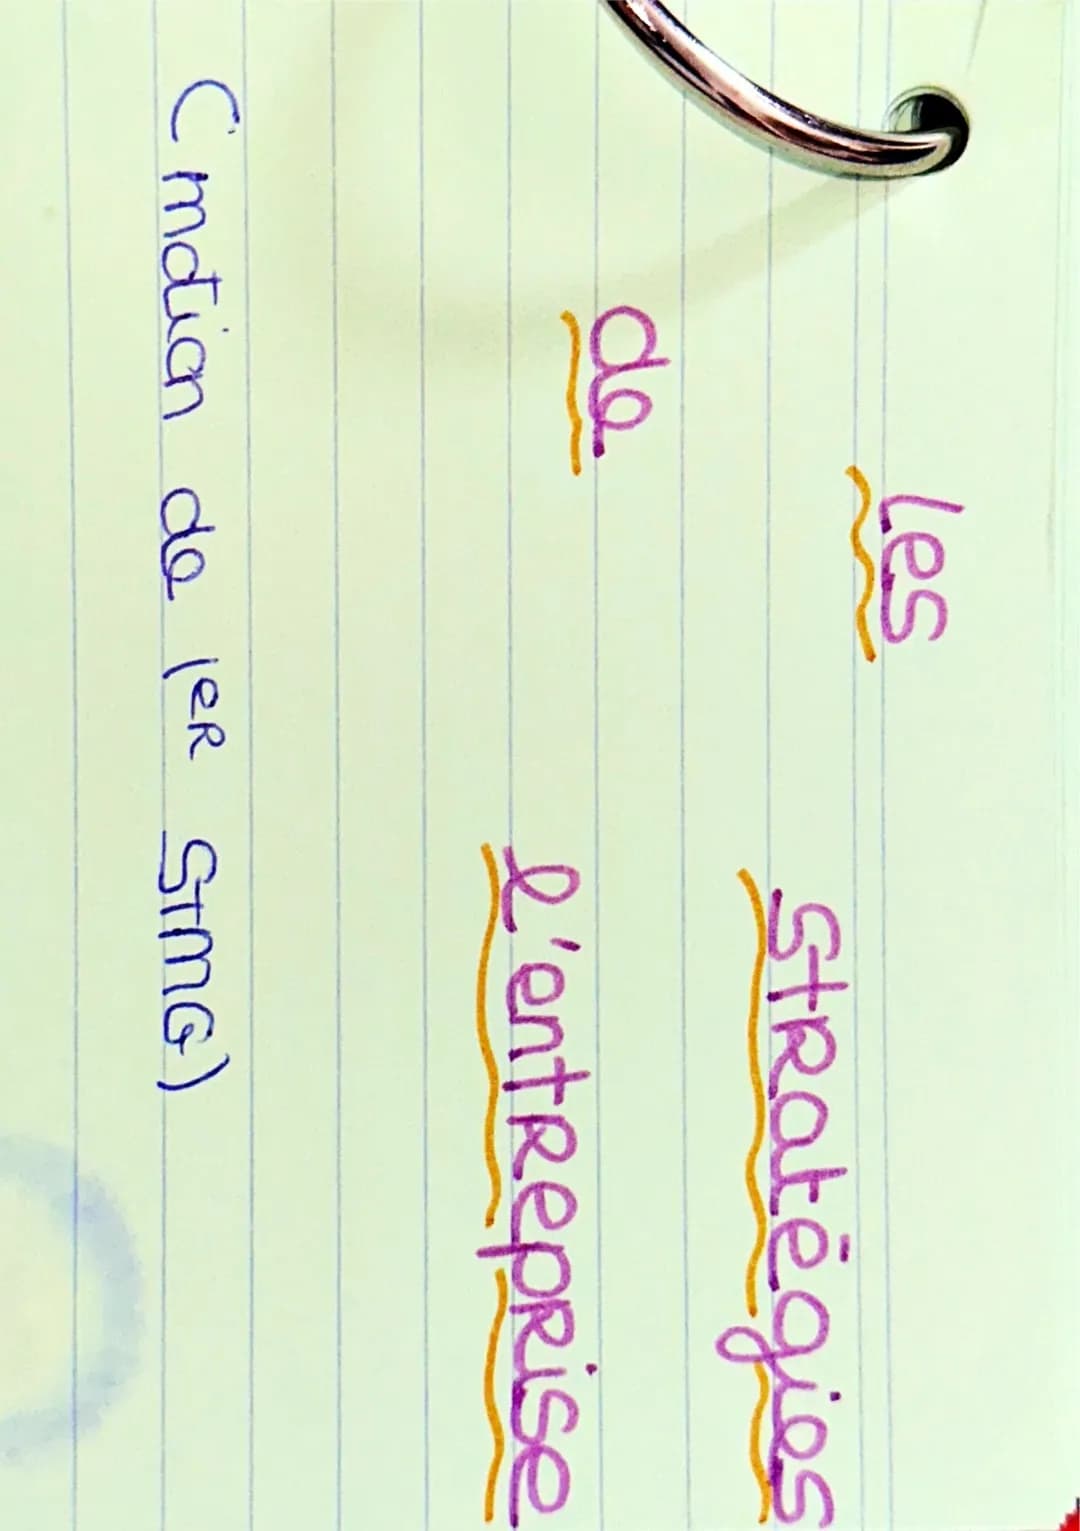 Les
Stratégies
de l'entreprise
(notion de 1er STMG)